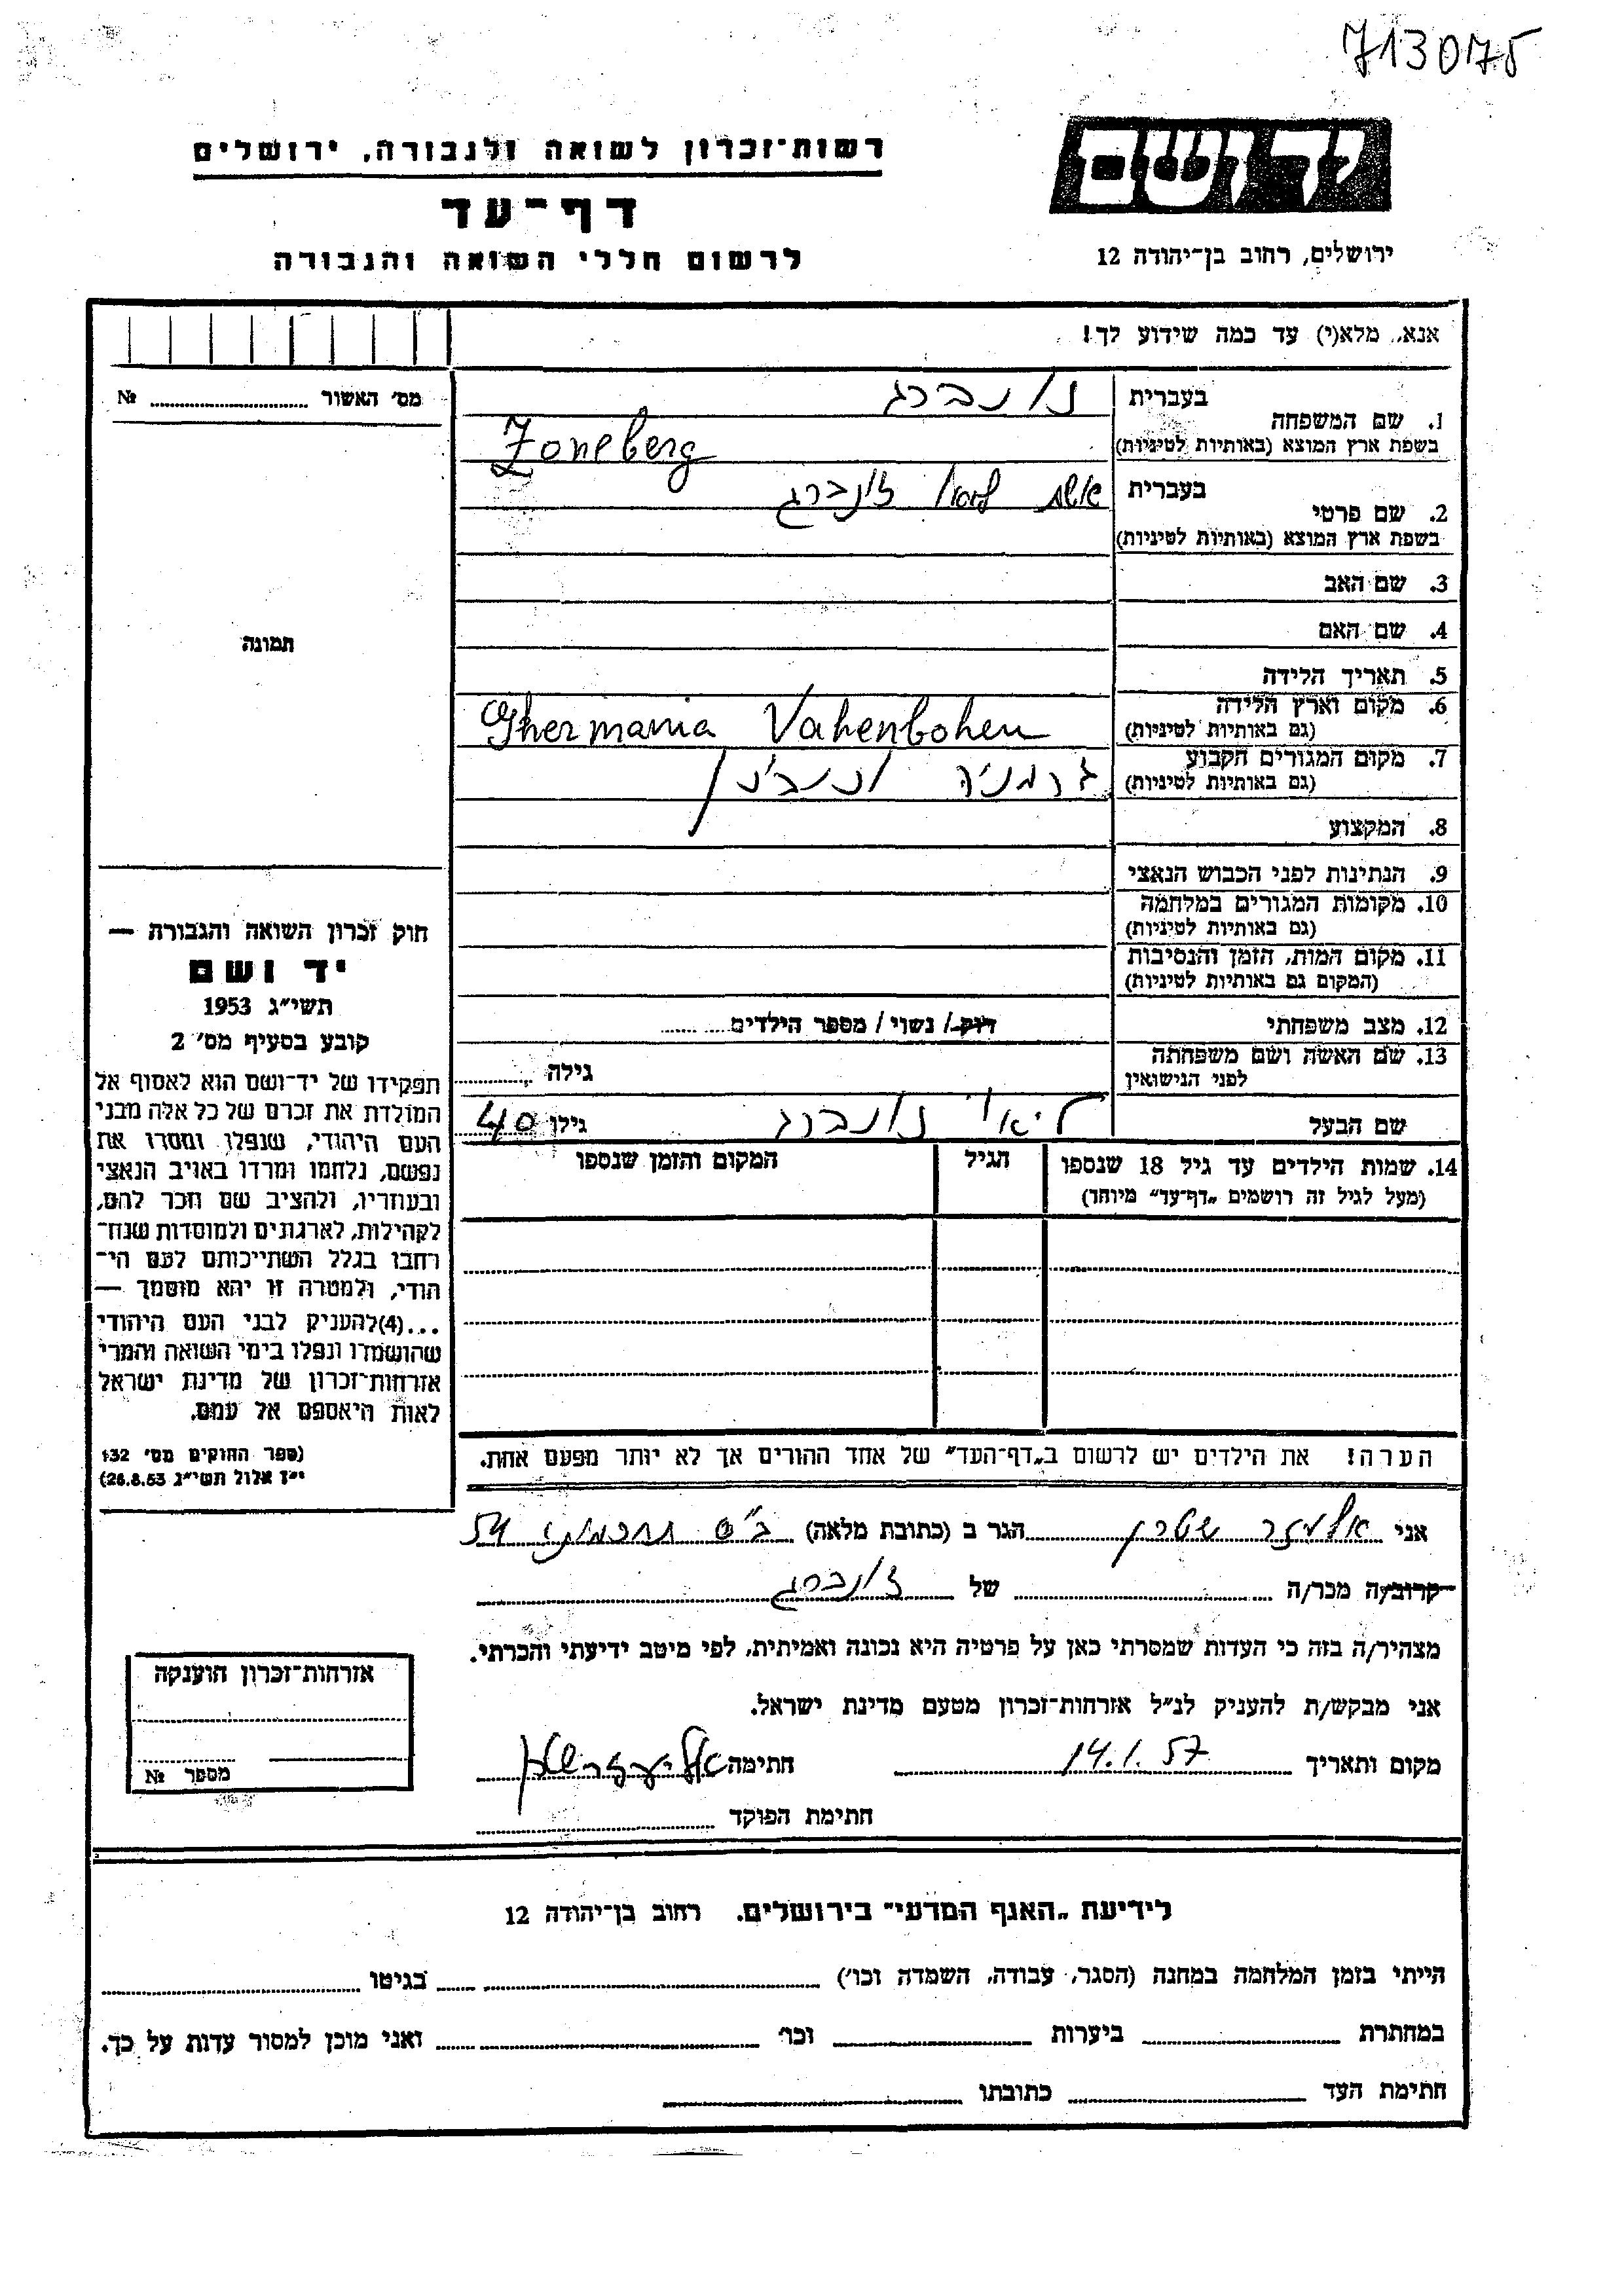 713075
יד ושם
רשות־זכרון לשואה ולגבורה, ירושלים
דף־עד
לרשום חללי השואה והגבורה
ירושלים, רחוב בן־יהודה 12
אנא, מלא(י) עד כמה שידוע לך!
מס׳ האשור № 
1. שם המשפחה
בעברית זונברג
בשפת ארץ המוצא (באותיות לטיניות) Zoneberg
2. שם פרטי
בעברית אשת זונברג
בשפת ארץ המוצא (באותיות לטיניות)
3. שם האב
4. שם האם
5. תאריך הלידה
6. מקום וארץ הלידה
(גם באותיות לטיניות) Ghermania Vahenbohen
7. מקום המגורים הקבוע
(גם באותיות לטיניות) גרמניה
8. המקצוע
9. הנתינות לפני הכבוש הנאצי
10. מקומות המגורים במלחמה
(גם באותיות לטיניות)
11. מקום המות, הזמן והנסיבות
(המקום גם באותיות לטיניות)
12. מצב משפחתי רוק/ נשוי/ מספר הילדים
13. שם האשה ושם משפחתה
לפני הנישואין גילה
שם הבעל זונברג גילו 40
14. שמות הילדים עד גיל 18 שנספו הגיל המקום והזמן שנספו
(מעל לגיל זה רושמים „דף־עד״ מיוחד)
הערה! את הילדים יש לרשום ב„דף־העד״ של אחד ההורים אך לא יותר מפעם אחת.
תמונה
חוק זכרון השואה והגבורת —
יד ושם
תשי״ג 1953
קובע בסעיף מס׳ 2
תפקידו של יד־ושם הוא לאסוף אל
המולדת את זכרם של כל אלה מבני
העם היהודי, שנפלו ומסרו את
נפשם, נלחמו ומרדו באויב הנאצי
ובעוזריו, ולהציב שם וזכר להם,
לקהילות, לארגונים ולמוסדות שנח־
רבו בגלל השתייכותם לעם הי־
הודי, ולמטרה זו יהא מוסמך —
...(4)להעניק לבני העם היהודי
שהושמדו ונפלו בימי השואה והמרי
אזרחות־זכרון של מדינת ישראל
לאות היאספם אל עמם.
(ספר החוקים מס׳ 132
י״ז אלול תשי״ג 26.8.53)
אני אליעזר שטרן הגר ב (כתובת מלאה) 54
קרוב/ה מכר/ה של זונברג
מצהיר/ה בזה כי העדות שמסרתי כאן על פרטיה היא נכונה ואמיתית, לפי מיטב ידיעתי והכרתי.
אני מבקש/ת להעניק לנ״ל אזרחות־זכרון מטעם מדינת ישראל.
מקום ותאריך 14.1.57 חתימה אליעזר שטרן
חתימת הפוקד
אזרחות־זכרון הוענקה
מספר №
לידיעת „האגף המדעי״ בירושלים. רחוב בן־יהודה 12
הייתי בזמן המלחמה במחנה (הסגר, עבודה, השמדה וכו׳) בגיטו
במחתרת ביערות וכו׳ ואני מוכן למסור עדות על כך.
חתימת העד כתובתו